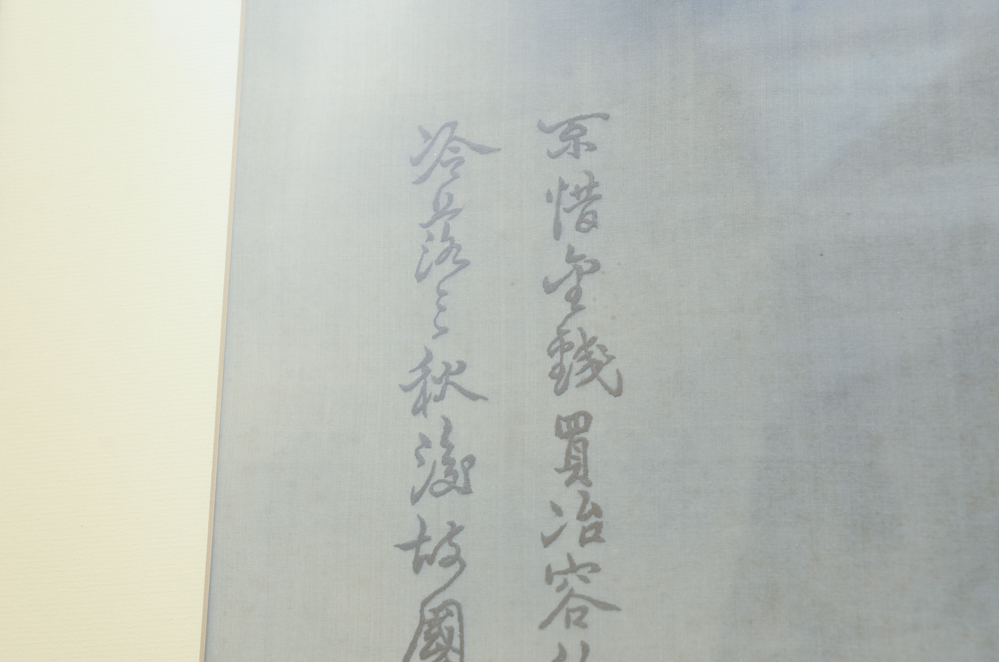 不惜金錢買冶容
冷落三秋後故國